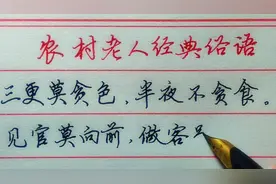 农村老人经典俗语
三更莫贪色，半夜不贪食。
见官莫向前，做客